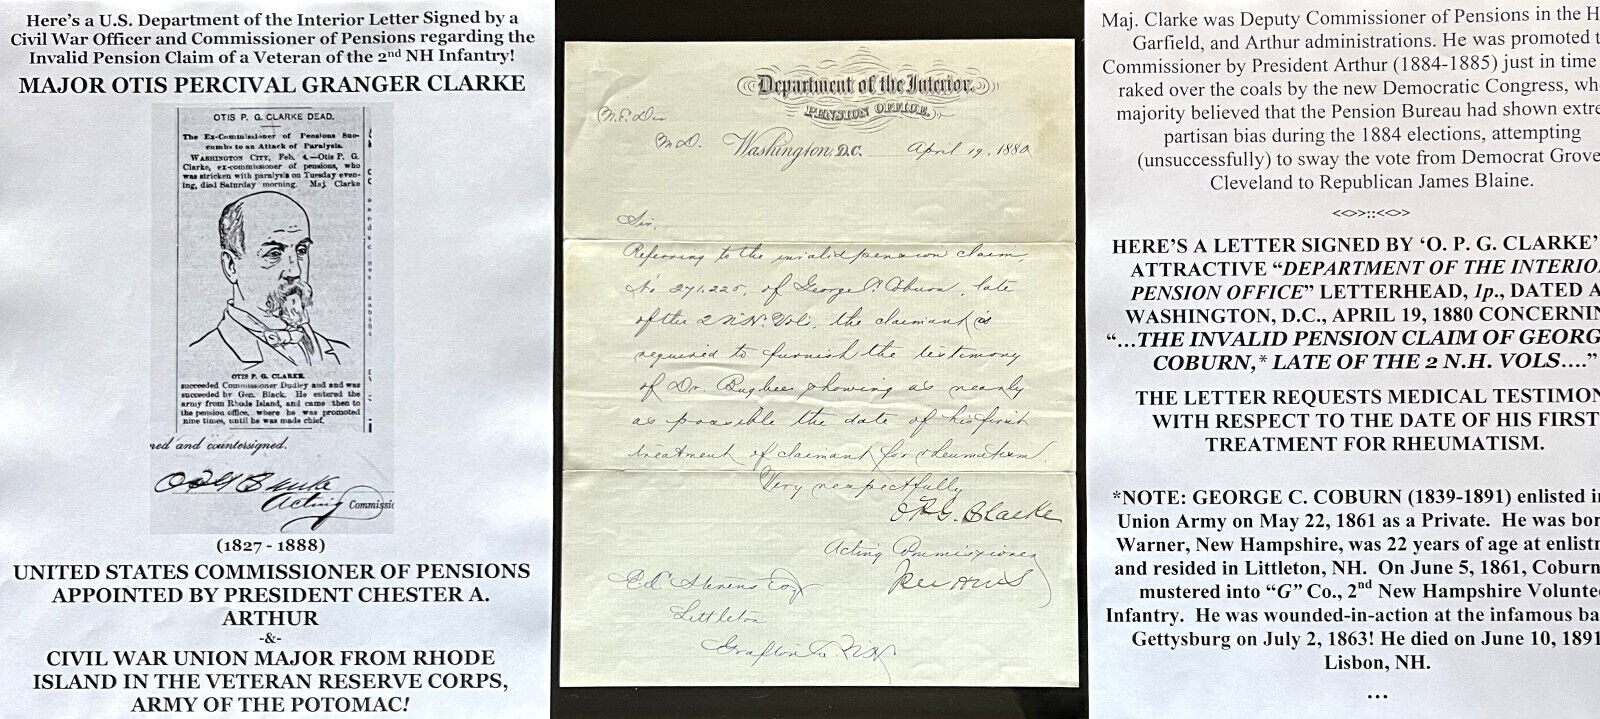 Here's a U.S. Department of the Interior Letter Signed by a
Civil War Officer and Commissioner of Pensions regarding the
Invalid Pension Claim of a Veteran of the 2nd NH Infantry!
MAJOR OTIS PERCIVAL GRANGER CLARKE
OTIS P. G. CLARKE DEAD.
The Ex-Commissioner of Pensions Suc-
cumbs to an Attack of Paralysis.
WASHINGTON CITY, Feb. 4.—Otis P. G.
Clarke, ex-commissioner of pensions, who
was stricken with paralysis on Tuesday even-
ing, died Saturday morning. Maj. Clarke
OTIS P. G. CLARKE.
succeeded Commissioner Dudley and and was
succeeded by Gen. Black. He entered the
army from Rhode Island, and came then to
the pension office, where he was promoted
nine times, until he was made chief.
ned and countersigned.
O P G Clarke
Acting Commissio
(1827 - 1888)
UNITED STATES COMMISSIONER OF PENSIONS
APPOINTED BY PRESIDENT CHESTER A.
ARTHUR
-&-
CIVIL WAR UNION MAJOR FROM RHODE
ISLAND IN THE VETERAN RESERVE CORPS,
ARMY OF THE POTOMAC!
Department of the Interior,
PENSION OFFICE,
N.E. Div
Washington, D.C. April 19, 1880.
Sir,
Referring to the invalid pension claim,
No 271.225, of George C. Coburn, late
of the 2 N.H. Vols, the claimant is
required to furnish the testimony
of Dr. Bugbee showing as nearly
as possible the date of his first
treatment of claimant for rheumatism.
Very respectfully
O.P.G. Clarke
Acting Commissioner
Ed Stevens Esq
Littleton
Grafton Co. N.H.
Maj. Clarke was Deputy Commissioner of Pensions in the H
Garfield, and Arthur administrations. He was promoted t
Commissioner by President Arthur (1884-1885) just in time
raked over the coals by the new Democratic Congress, wh
majority believed that the Pension Bureau had shown extre
partisan bias during the 1884 elections, attempting
(unsuccessfully) to sway the vote from Democrat Grove
Cleveland to Republican James Blaine.
<<>>::<<>>
HERE'S A LETTER SIGNED BY 'O. P. G. CLARKE'
ATTRACTIVE "DEPARTMENT OF THE INTERIO
PENSION OFFICE" LETTERHEAD, 1p., DATED A
WASHINGTON, D.C., APRIL 19, 1880 CONCERNIN
"…THE INVALID PENSION CLAIM OF GEORG
COBURN,* LATE OF THE 2 N.H. VOLS…."
THE LETTER REQUESTS MEDICAL TESTIMON
WITH RESPECT TO THE DATE OF HIS FIRST
TREATMENT FOR RHEUMATISM.
*NOTE: GEORGE C. COBURN (1839-1891) enlisted in
Union Army on May 22, 1861 as a Private. He was bor
Warner, New Hampshire, was 22 years of age at enlistr
and resided in Littleton, NH. On June 5, 1861, Coburn
mustered into "G" Co., 2nd New Hampshire Volunte
Infantry. He was wounded-in-action at the infamous ba
Gettysburg on July 2, 1863! He died on June 10, 1891
Lisbon, NH.
…